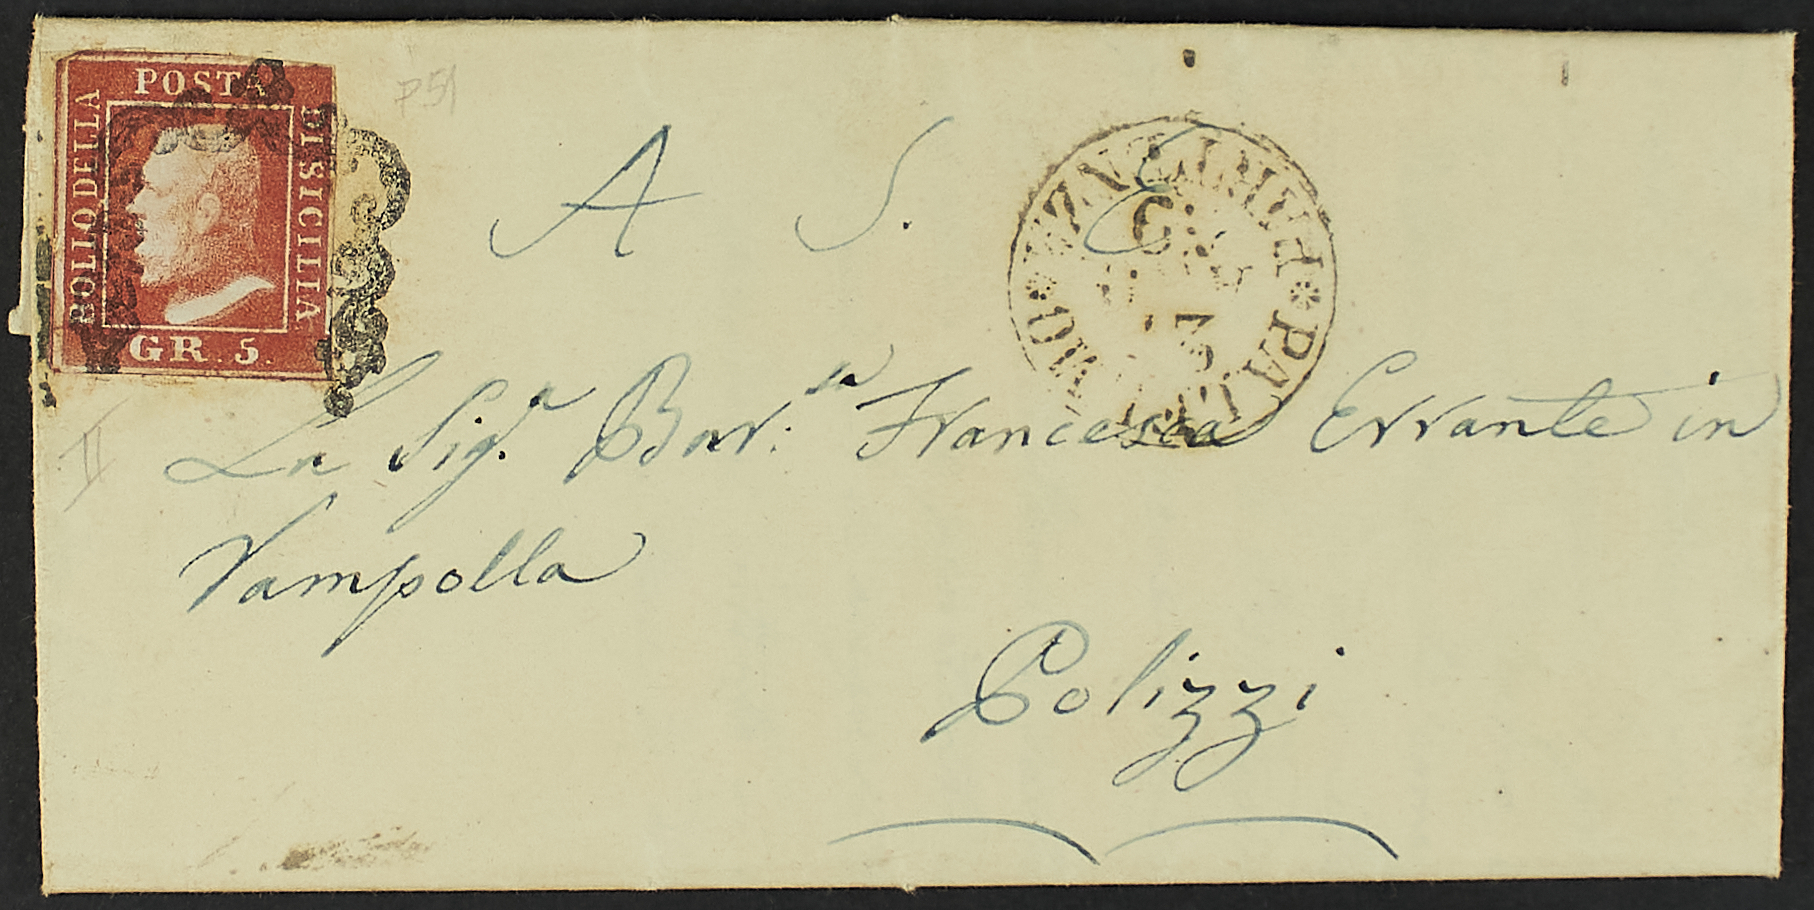 POSTA
BOLLO DELLA
DI SICILIA
GR. 5.
P51
II
PARTENZA
PALERMO
A S. E.
La Sig.a Bar.sa Francesca Errante in
Rampolla
Polizzi